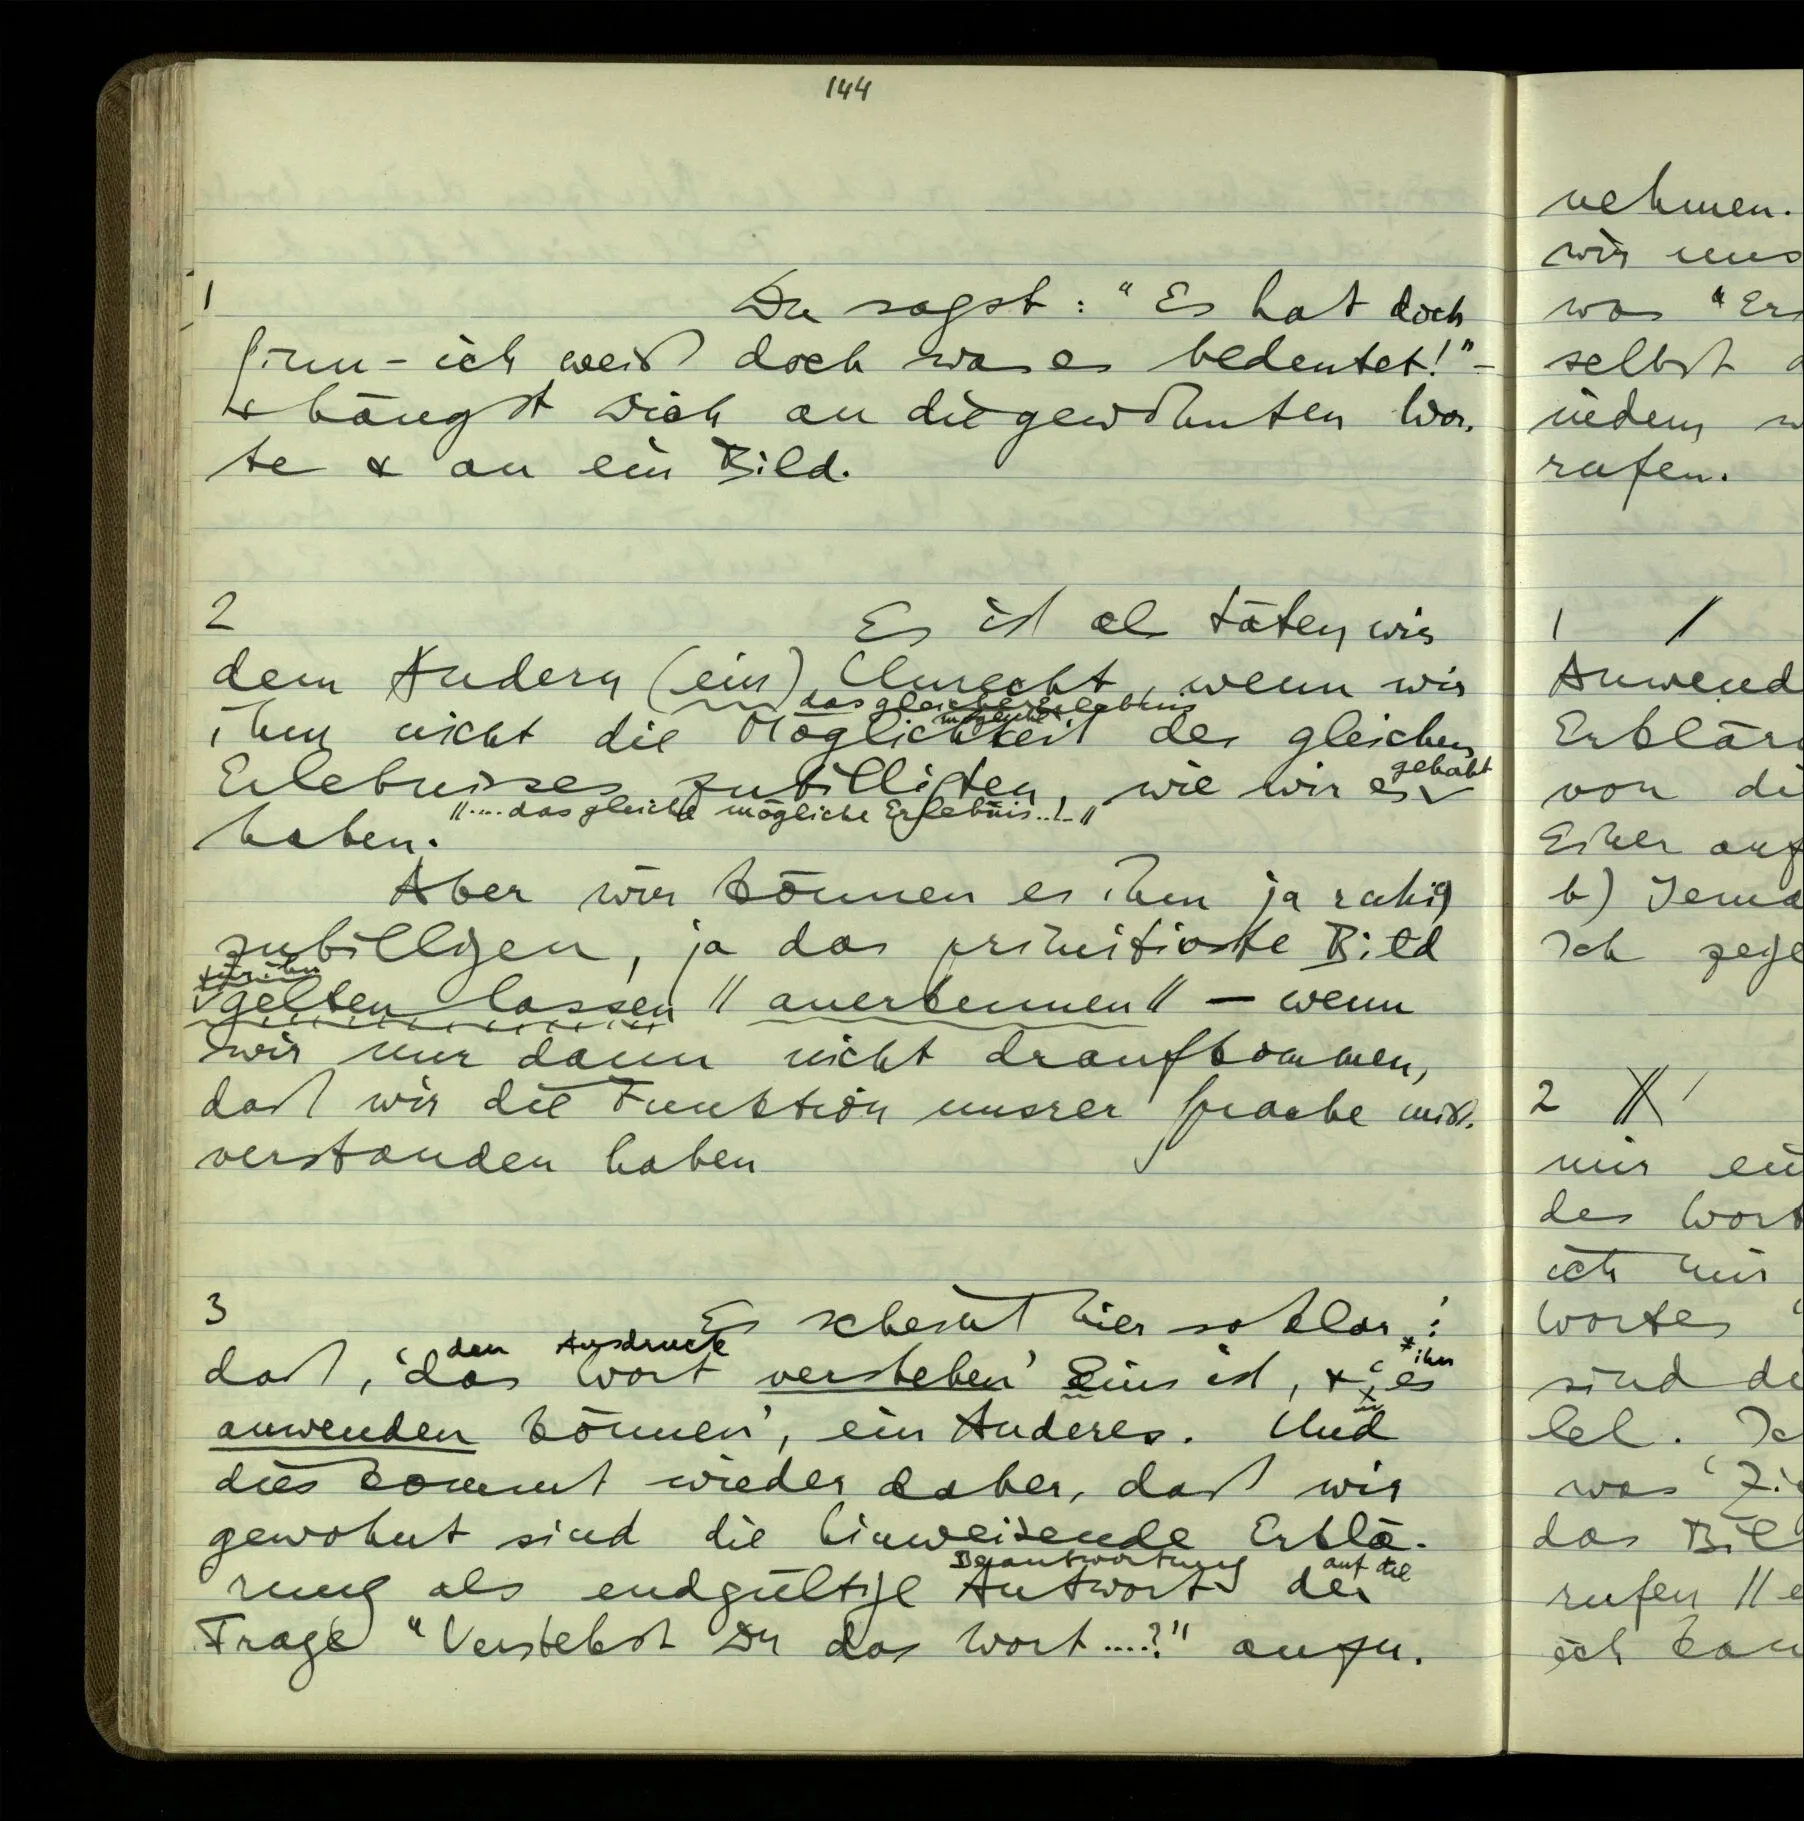 144
1
Du sagst: “Es hat doch
Sinn – ich weiß doch was es bedeutet!” –
& hängst Dich an die gewohnten Wor-
te & an ein Bild.
2
Es ist als täten wir
dem Andern (ein) Unrecht, wenn wir
das gleiche Erlebnis
mögliche
ihm nicht die Möglichkeit des gleichen
gehabt
Erlebnisses zubilligten, wie wir es
“....das gleiche mögliche Erlebnis..."
haben.
Aber wir können es ihm ja ruhig
zubilligen, ja das primitivste Bild
für ihn
gelten lassen // anerkennen // — wenn
wir nur dann nicht draufkommen,
daß wir die Funktion unsrer Sprache miß-
verstanden haben
3
Es scheint hier so klar:
den Ausdruck
ihn
daß, ‘das Wort verstehen’ Eins ist, & ‘es
anwenden können’, ein Anderes. Und
dies kommt wieder daher, daß wir
gewohnt sind die hinweisende Erklä-
Beantwortung
auf die
rung als endgültige Antwort der
Frage “Verstehst Du das Wort ....?” anzu-
nehmen.
wir uns
was “Er
selbst
indem
rufen.
1 /
Anwend
Erklär
von di
Einer auf
b) Jema
Ich zeige
2
mir ein
des Wort
ich mir
Wortes
sind di
lel. Ic
was
das Bil
rufen //
ich kan